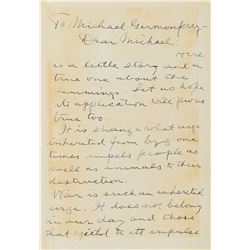 To Michael Germonprez –
Dear Michael:
Here
is a little story and a
true one about the
lemmings. Let us hope
its application will prove
true too.
It is strange what urge
inherited from bygone
times impels people as
well as animals to their
destruction.
War is such an inherited
urge. It does not belong
in our day and those
that yield to its impulse